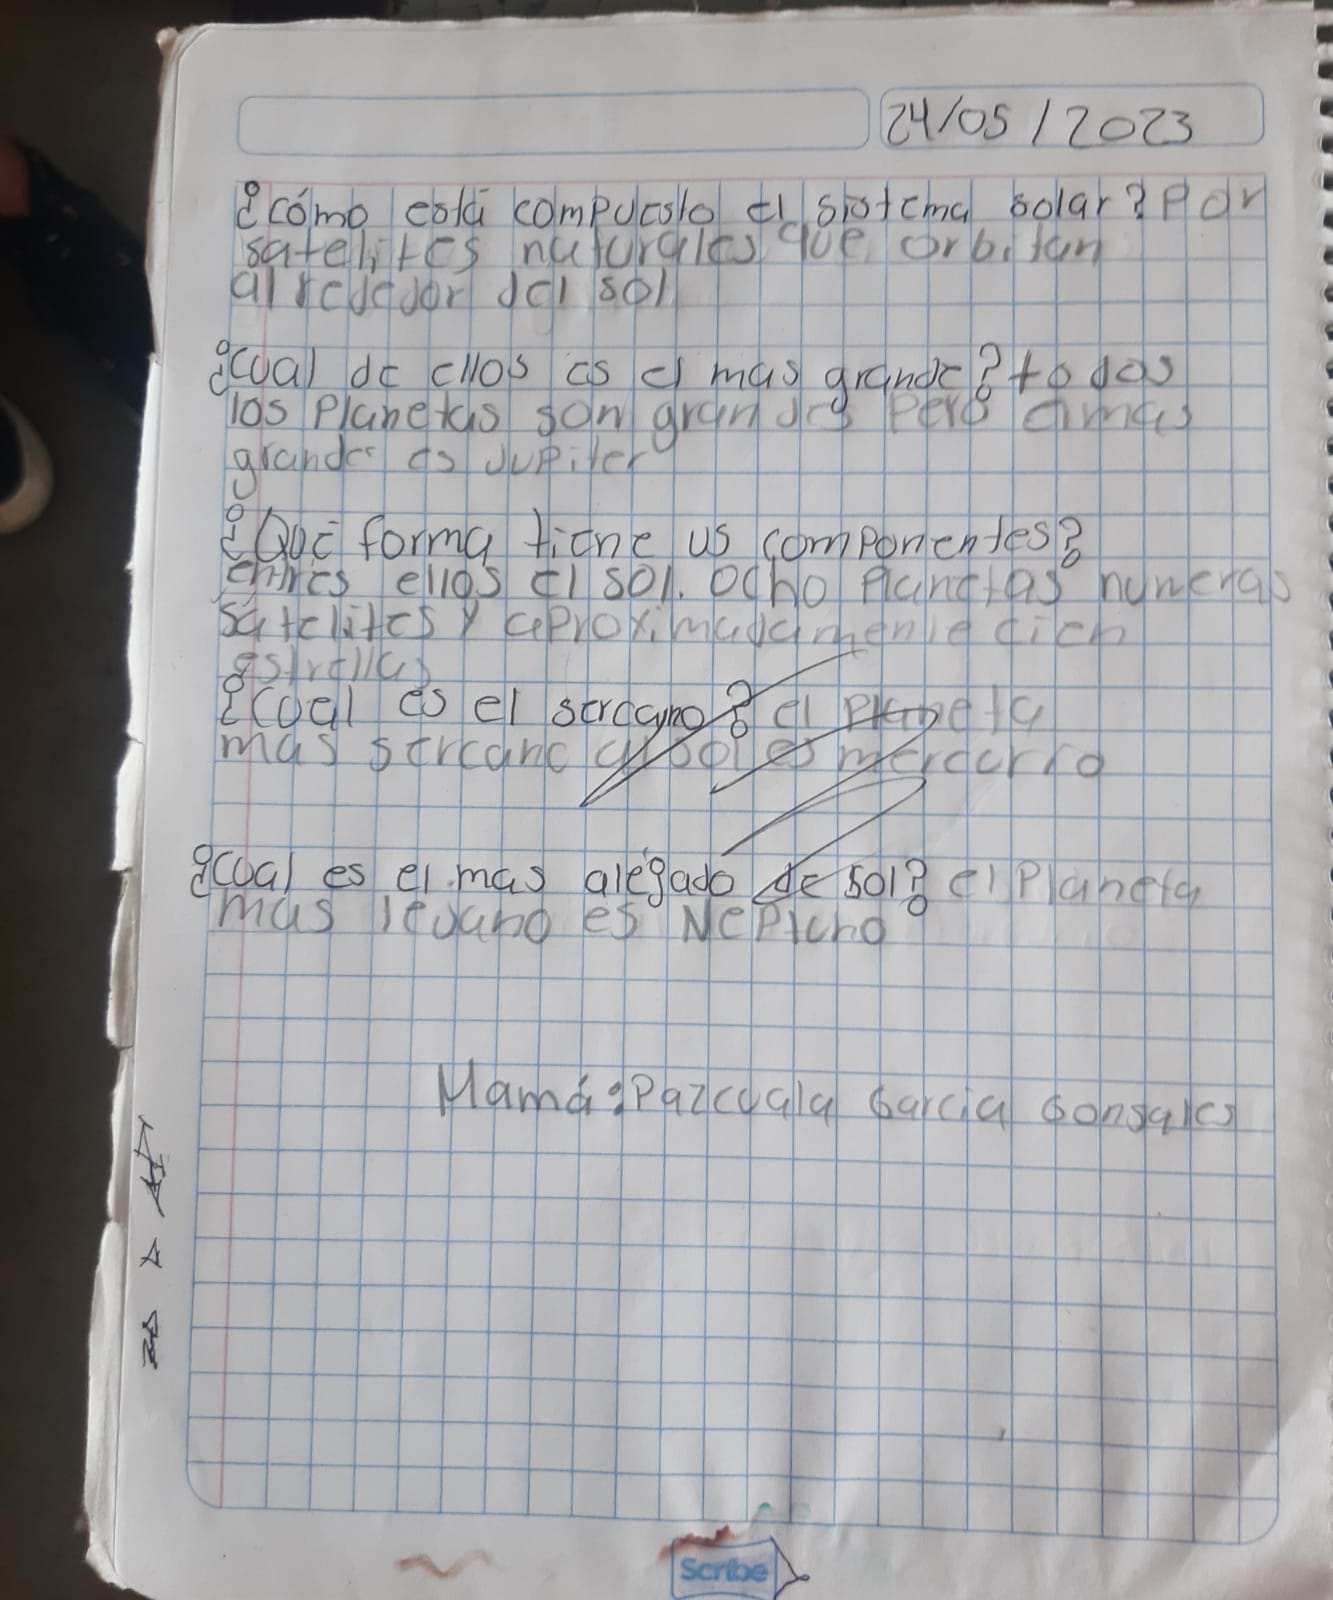 24/05/2023
¿cómo está compuesto el sistema solar? Por
satelites naturales que orbitan
alrededor del sol
¿cual de ellos es el mas grande? todos
los Planetas son grandes Pero el mas
grande es Jupiter
¿Qué forma tiene us componentes?
entres ellos el sol. ocho Planetas numeras
satelites y aproximadamente cien
estrellas
¿cual es el sercano? el Planeta
mas sercano al sol es mercurio
¿cual es el mas alegado de sol? el Planeta
mas levano es Neptuno
Mamá: Pazcuala Garcia Gonsales
Scribe